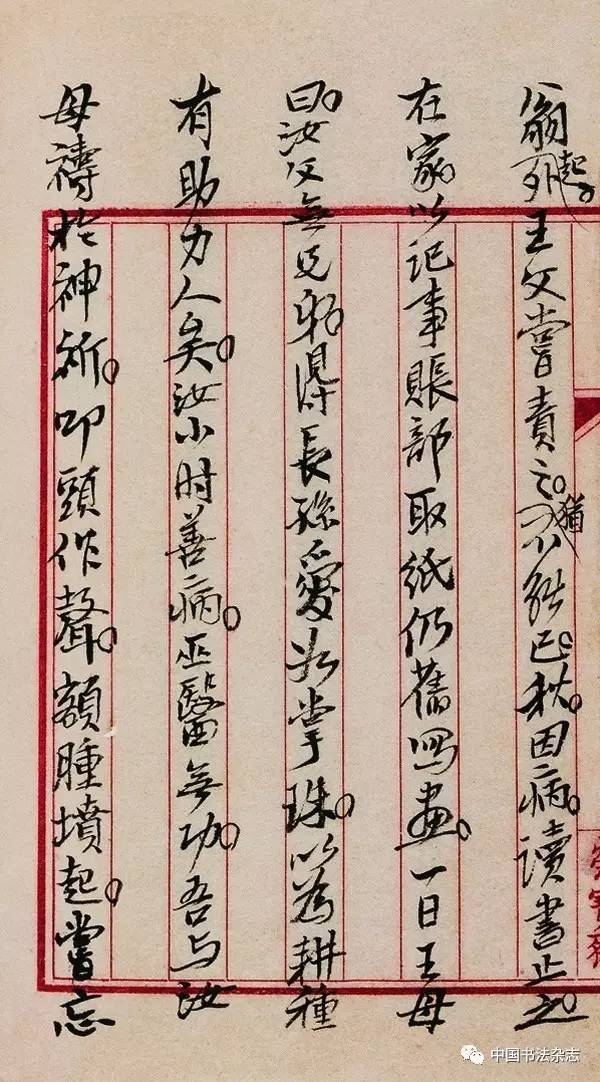 翁起。外王父嘗責之。猶不能已。秋。因病。讀書止之。
在家以記事賬部取紙仍舊寫畫。一日王母
曰。汝父無兄弟。得長孫愛如掌珠。以為耕種
有助力人矣。汝小时善病。巫醫無功。吾与汝
母禱於神祈。叩頭作聲。額腫墳起。嘗忘
中国书法杂志